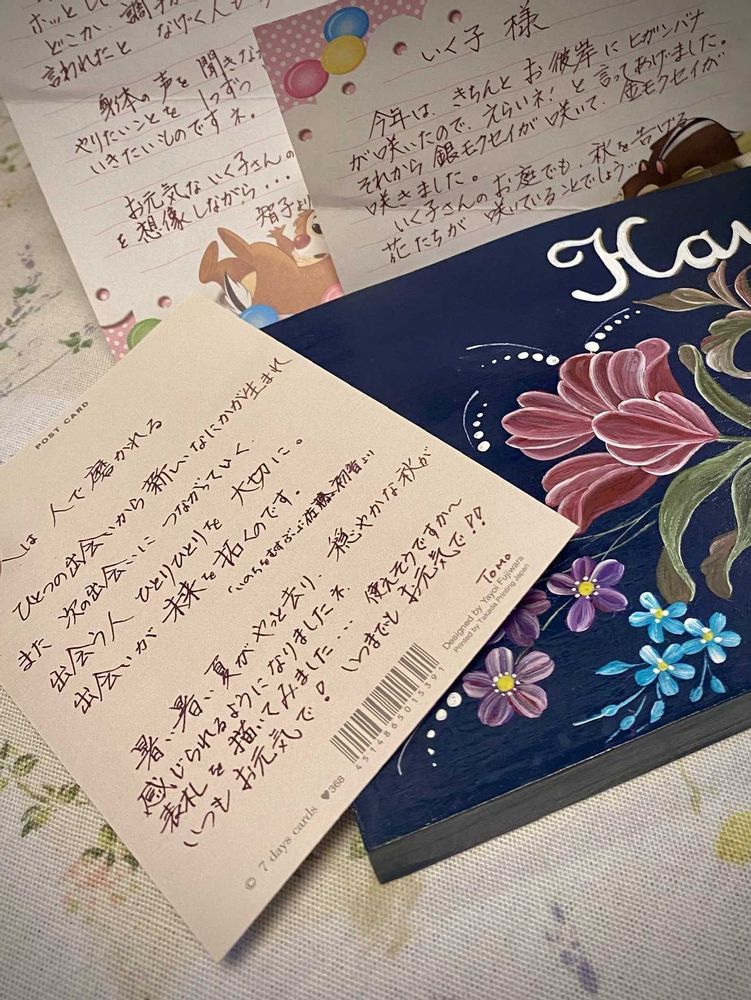 ホッとして
どこか、調子が
言われたと なげく人も
身体の声を 聞きなが
やりたいことを 1つずつ
いきたいものですネ。
お元気な いく子さんの
を想像しながら・・・
智子より
いく子 様
今年は、きちんと お彼岸に ヒガンバナ
が咲いたので、えらいネ! と言ってあげました。
それから 銀モクセイが咲いて、金モクセイが
咲きました。
いく子さんのお庭でも、秋を告げる
花たちが 咲いていることでしょう…
Ha
POST CARD
人は 人で磨かれる
ひとつの出会いから 新しいなにかが生まれ
また 次の出会いに つながっていく.
出会う人 ひとりひとりを 大切に。
出会いが 未来を拓くのです。
"いのちをむすぶ" 佐藤初音より
暑い暑い夏がやっと去り、穏やかな秋が
感じられるようになりましたネ.
表札を 描いてみました… 使えそうですか〜
いつもお元気で! いつまでも お元気で!!
TOMO
Designed by Yayoi Fujiwara
Printed by Takada Printing Japan
4514865015391
© 7 days cards ♥368